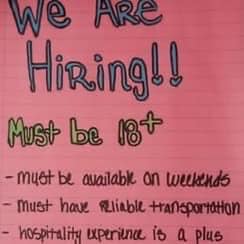 We Are
Hiring!!
Must be 18+
- must be available on weekends
- must have reliable transportation
- hospitality experience is a plus